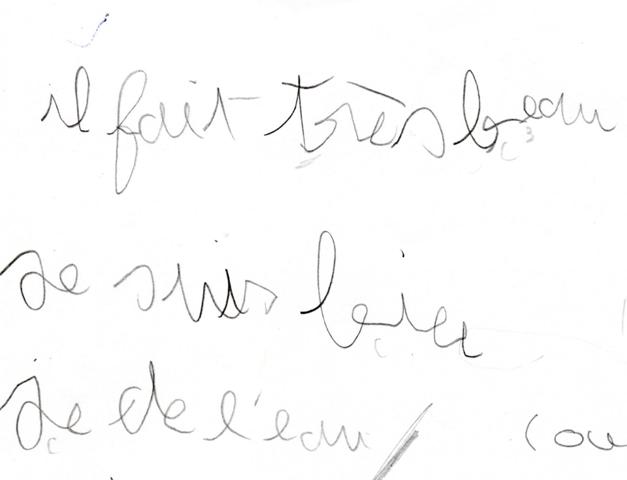 il fait très beau
je suis
je de l'eau / (ou